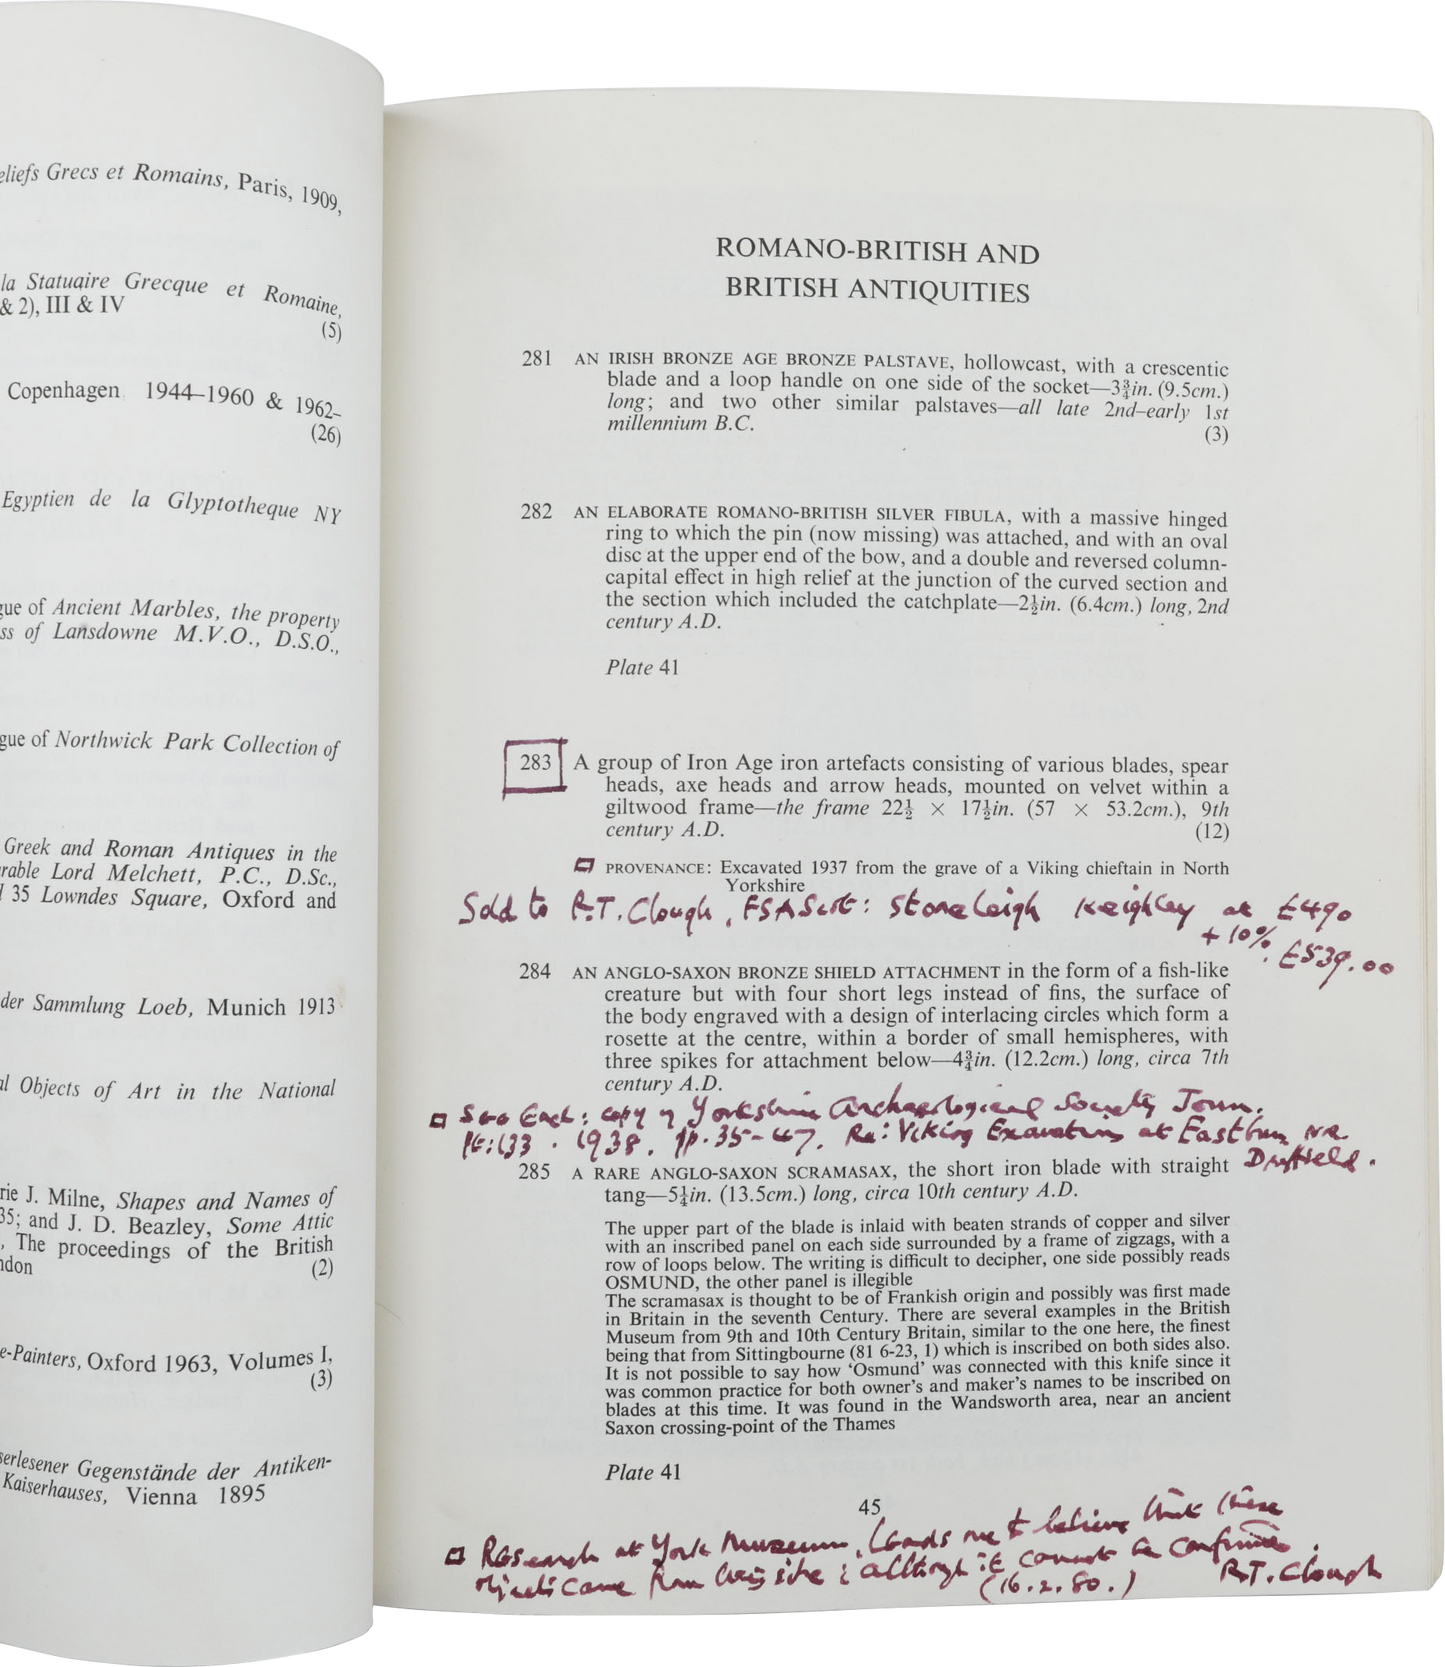 eliefs Grecs et Romains, Paris, 1909,
la Statuaire Grecque et Romaine,
& 2), III & IV
(5)
Copenhagen 1944–1960 & 1962–
(26)
Egyptien de la Glyptotheque NY
gue of Ancient Marbles, the property
ss of Lansdowne M.V.O., D.S.O.,
gue of Northwick Park Collection of
Greek and Roman Antiques in the
rable Lord Melchett, P.C., D.Sc.,
35 Lowndes Square, Oxford and
der Sammlung Loeb, Munich 1913
al Objects of Art in the National
rie J. Milne, Shapes and Names of
35; and J. D. Beazley, Some Attic
, The proceedings of the British
ndon (2)
e-Painters, Oxford 1963, Volumes I,
(3)
serlesener Gegenstände der Antiken-
Kaiserhauses, Vienna 1895
ROMANO-BRITISH AND
BRITISH ANTIQUITIES
281 AN IRISH BRONZE AGE BRONZE PALSTAVE, hollowcast, with a crescentic
blade and a loop handle on one side of the socket—3¾in. (9.5cm.)
long; and two other similar palstaves—all late 2nd–early 1st
millennium B.C. (3)
282 AN ELABORATE ROMANO-BRITISH SILVER FIBULA, with a massive hinged
ring to which the pin (now missing) was attached, and with an oval
disc at the upper end of the bow, and a double and reversed column-
capital effect in high relief at the junction of the curved section and
the section which included the catchplate—2½in. (6.4cm.) long, 2nd
century A.D.
Plate 41
283 A group of Iron Age iron artefacts consisting of various blades, spear
heads, axe heads and arrow heads, mounted on velvet within a
giltwood frame—the frame 22½ × 17½in. (57 × 53.2cm.), 9th
century A.D. (12)
PROVENANCE: Excavated 1937 from the grave of a Viking chieftain in North
Yorkshire
Sold to R.T. Clough, FSAScot: Stoneleigh Keighley at £490
+ 10% £539.00
284 AN ANGLO-SAXON BRONZE SHIELD ATTACHMENT in the form of a fish-like
creature but with four short legs instead of fins, the surface of
the body engraved with a design of interlacing circles which form a
rosette at the centre, within a border of small hemispheres, with
three spikes for attachment below—4¾in. (12.2cm.) long, circa 7th
century A.D.
See Encl: copy of Yorkshire Archaeological Society Journ.
Pt: 133. 1938. pp. 35-47. Re: Viking Excavations at Eastburn NR
Driffield.
285 A RARE ANGLO-SAXON SCRAMASAX, the short iron blade with straight
tang—5¼in. (13.5cm.) long, circa 10th century A.D.
The upper part of the blade is inlaid with beaten strands of copper and silver
with an inscribed panel on each side surrounded by a frame of zigzags, with a
row of loops below. The writing is difficult to decipher, one side possibly reads
OSMUND, the other panel is illegible
The scramasax is thought to be of Frankish origin and possibly was first made
in Britain in the seventh Century. There are several examples in the British
Museum from 9th and 10th Century Britain, similar to the one here, the finest
being that from Sittingbourne (81 6-23, 1) which is inscribed on both sides also.
It is not possible to say how ‘Osmund’ was connected with this knife since it
was common practice for both owner's and maker's names to be inscribed on
blades at this time. It was found in the Wandsworth area, near an ancient
Saxon crossing-point of the Thames
Plate 41
45
Research at York Museum, leads me to believe that these
objects came from this site; although it cannot be confirmed.
(16.2.80.) R.T. Clough